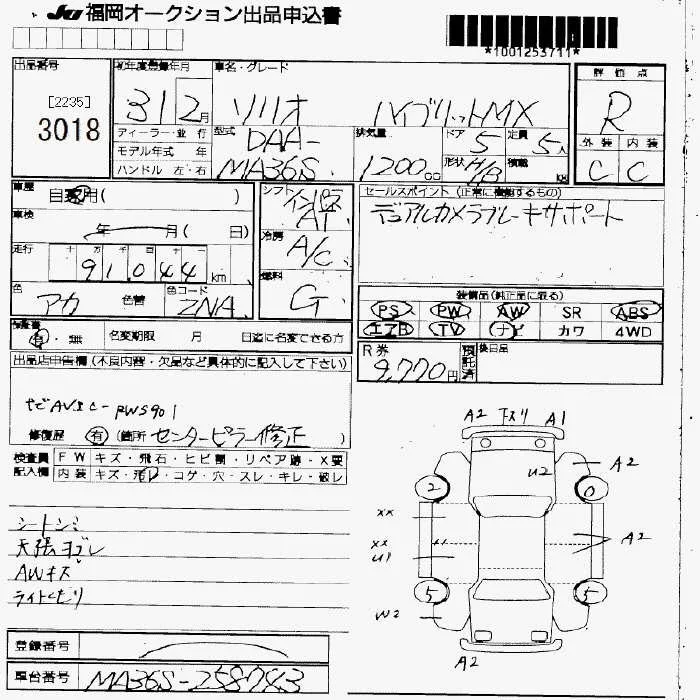 JU 福岡オークション出品申込書
*1001253711*
出品番号
[2235]
3018
初年度登録年月
31 2月
車名・グレード
ソリオ ハイブリットMX
評価点
R
外装 内装
C C
ディーラー・並行
モデル年式 年
ハンドル 左・右
型式
DAA-
MA36S
排気量
1200cc
ドア 5
定員 5人
形状 H/B
積載 kg
車歴 自家用( )
車検 年 月( 日)
走行 十 万 千 百 十 一
91,044 km
シフト インパネ AT
冷房 A/C
燃料 G
セールスポイント (正常に機能するもの)
デュアルカメラブレーキサポート
色 アカ 色替
色コード ZNA
装備品(純正品に限る)
PS PW AW SR ABS
エアB TV ナビ カワ 4WD
保証書 有・無
名変期限 月 日迄に名変できる方
R券 9,770円
預託済
後日品
出品店申告欄(不良内容・欠品など具体的に記入して下さい)
ナビAVエC-RWS901
修復歴 有 (箇所 センターピラー修正)
検査員記入欄
FW キズ・飛石・ヒビ割・リペア跡・X要
内装 キズ・汚レ・コゲ・穴・スレ・キレ・破レ
シートシミ
天張ヨゴレ
AWキズ
ライトくもり
A2 下スリ A1
U2 A2
2 0
XX
XX
U1
A2
5 5
W2
A2
登録番号
車台番号 MA36S-258743